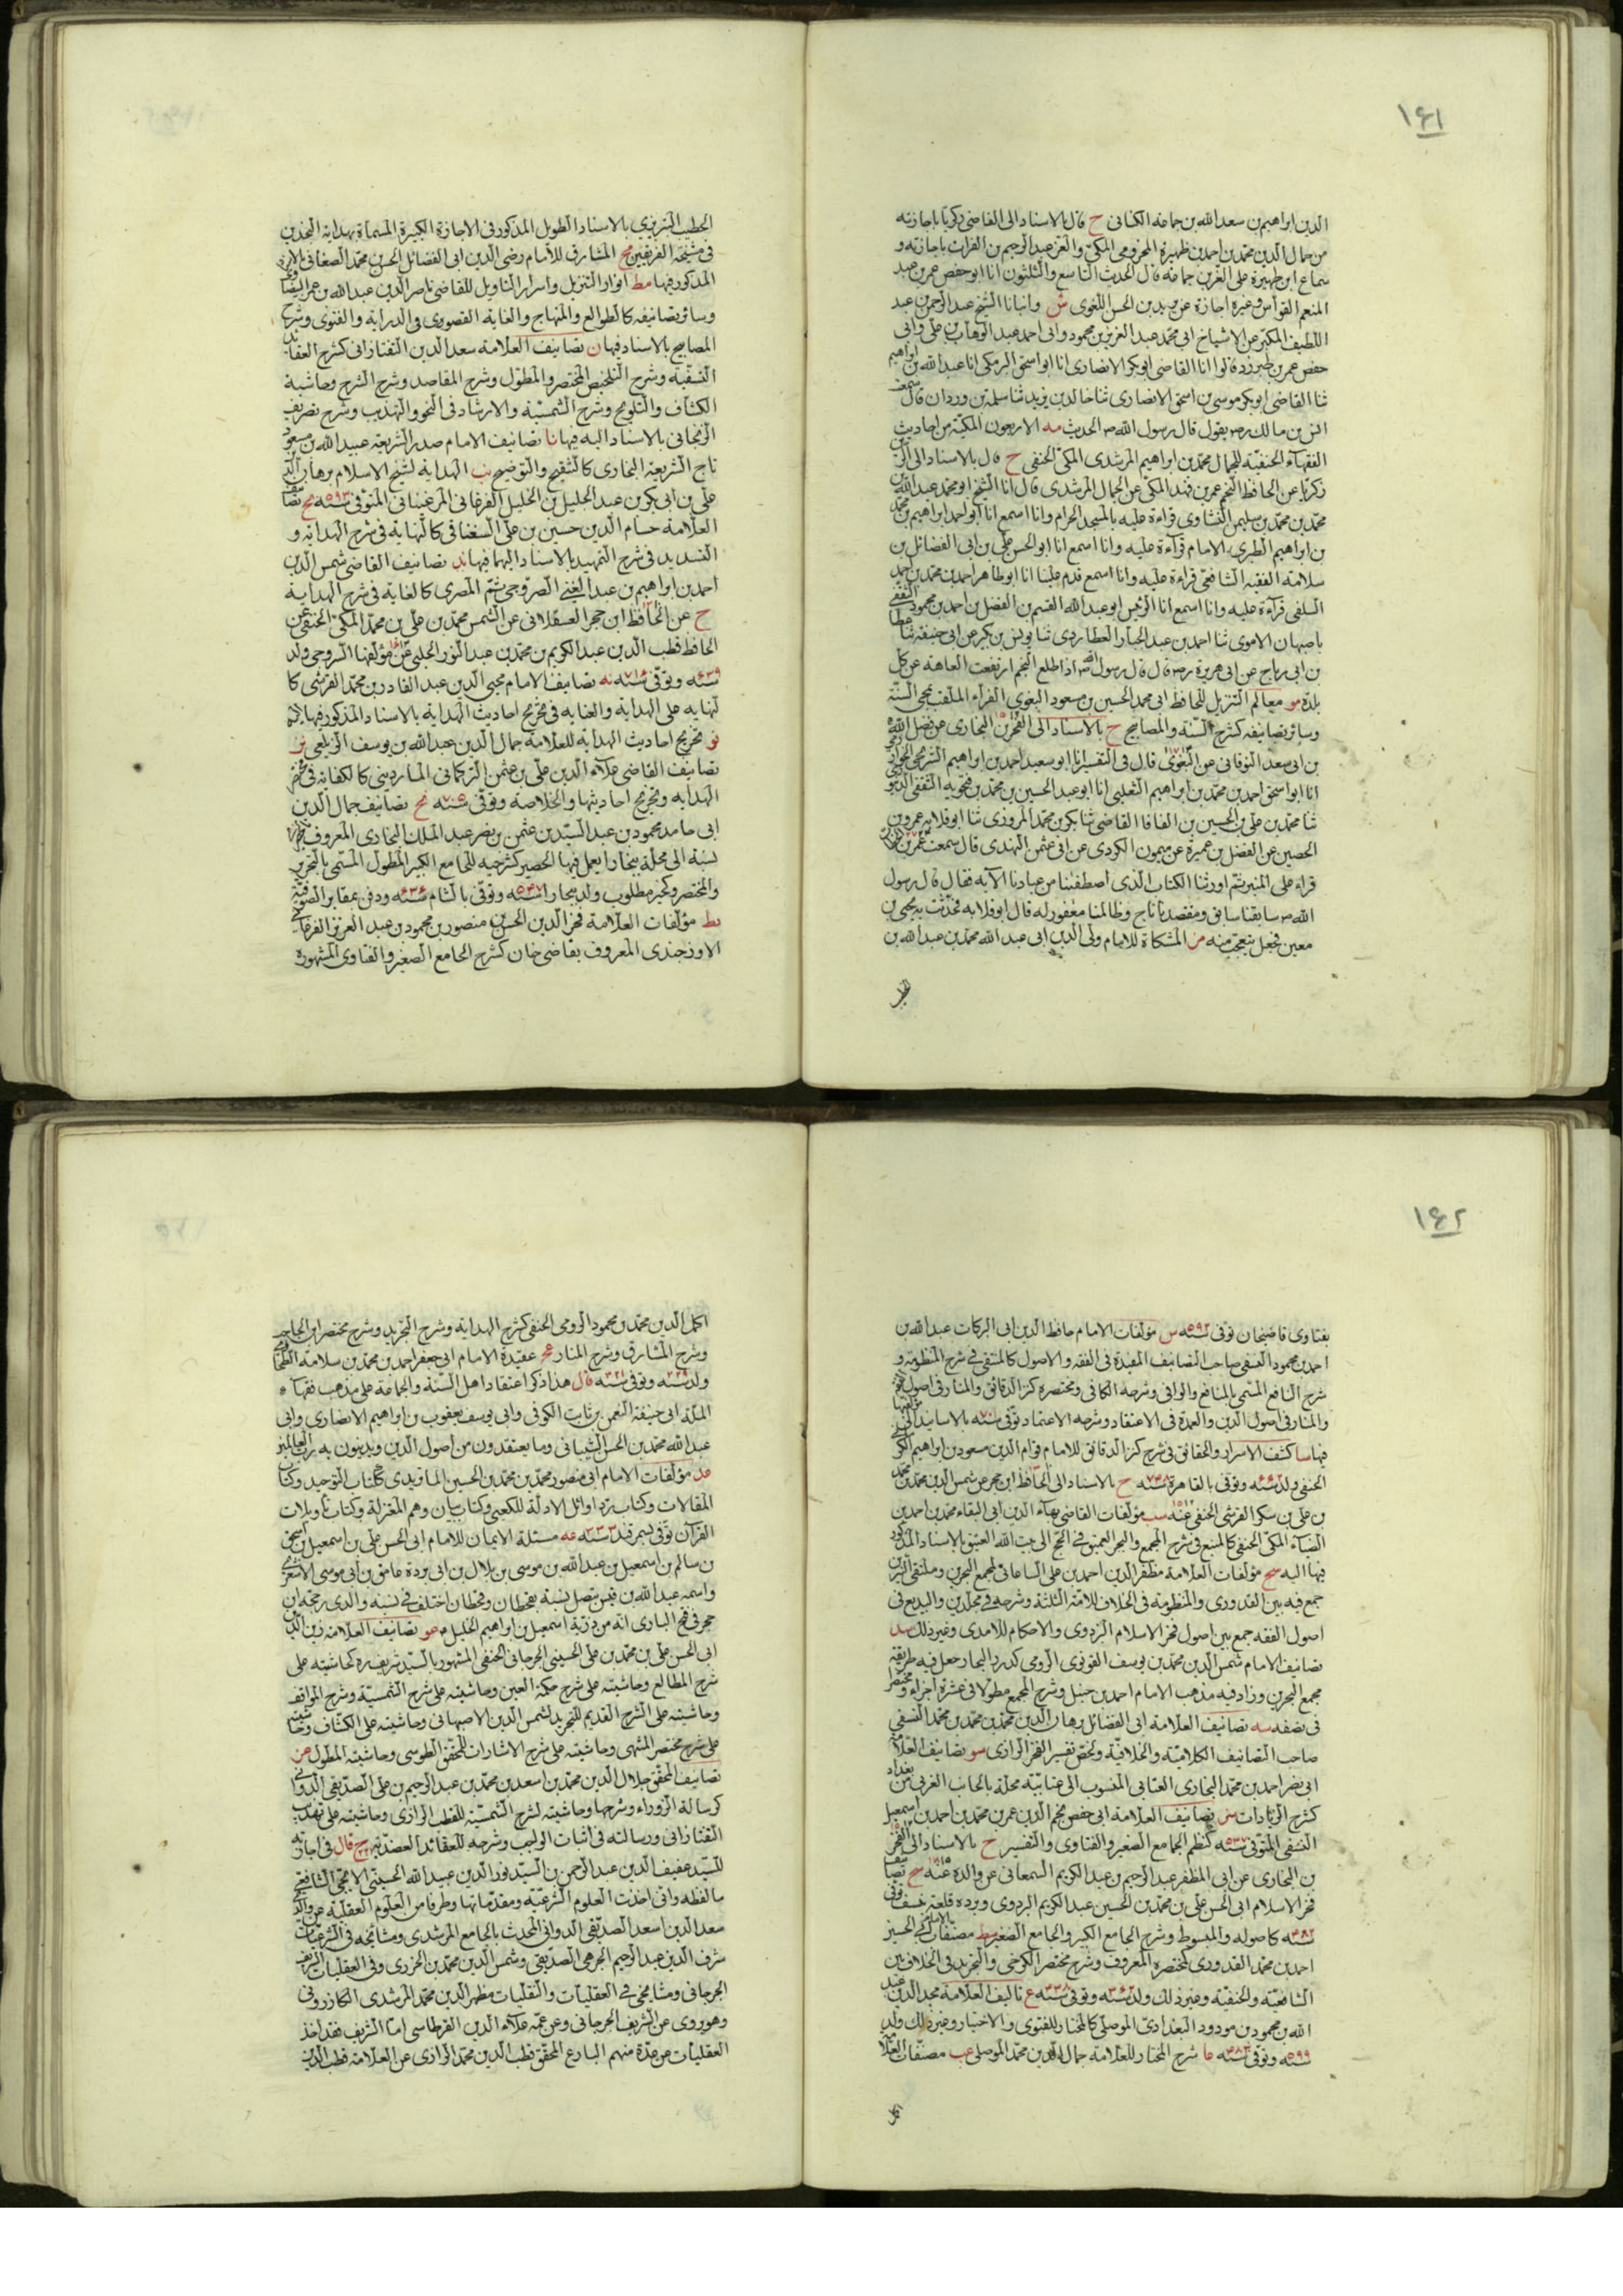 ١٤١
الدين ابراهيم بن سعد الله بن جماعة الكنانى ح قال بالاسناد الى القاضى زكريا باجازته
من جمال الدين محمد بن احمد بن ظهيرة المخزومى المكىّ والعز عبد الرحيم بن الفرات باجازته و
سماع ابن ظهيرة على العز بن جماعة قال الحديث التاسع والثلثون انا ابو حفص عمر بن عبد
المنعم القواس وغيره اجازة عن زيد بن الحسن اللغوى ش وانبانا الشيخ عبد الرحمن عبد
اللطيف المكبر عن الاشياخ ابى محمد عبد العزيز بن محمود وابى احمد عبد الوهاب بن على وابى
حفص عمر بن طبرزد قالوا انا القاضى ابو بكر الانصارى انا ابو اسحق البرمكى انا عبد الله بن ابراهيم
ثنا القاضى ابو بكر موسى بن اسحق الانصارى ثنا خالد بن يزيد ثنا سلمة بن وردان قال سمعت
انس بن مالك رضه يقول قال رسول الله صم الحديث مه الاربعون المكية من احاديث
الفقهاء الحنفيّة للجمال محمد بن ابراهيم المرشدى المكىّ الحنفى ح قال بالاسناد الى الزين
زكريا عن الحافظ النجم عمر بن فهد المكىّ عن الجمال المرشدى قال انا الشيخ ابو محمد عبد الله بن
محمد بن محمد بن سليمن النشاورى قراءة عليه بالمسجد الحرام وانا اسمع انا ابو احمد ابراهيم بن محمد
بن ابراهيم الطبرى الامام قرآءة عليه وانا اسمع انا ابو الحسن على بن ابى الفضائل بن
سلامة الفقيه الشافعىّ قراءة عليه وانا اسمع قدم علينا انا ابو طاهر احمد بن محمد بن احمد
السلفى قرآءة عليه وانا اسمع انا الرئيس ابو عبد الله القسم بن الفضل بن احمد بن محمود الثقفى
باصبهان الاموى ثنا احمد بن عبد الجبار العطاردى ثنا يونس بن بكير عن ابى حنيفة ثنا عطا
بن ابى رباح عن ابى هريرة رضه قال قال رسول الله صم اذا طلع النجم ارتفعت العاهة عن كل
بلدة مو معالم التنزيل للحافظ ابى محمد الحسين بن مسعود البغوى الفرآء الملقب بمحى السّنة
وسائر تصانيفه كشرح السّنة والمصابيح ح بالاسناد الى الفخر بن البخارى عن فضل الله
بن ابى سعد النوقانى عن البغوى قال فى التفسير انا ابو سعيد احمد بن ابراهيم الشريحى الخوارزمى
انا ابو اسحق احمد بن محمد بن ابراهيم الثعلبى انا ابو عبد الحسين بن محمد بن فنجويه الثقفى الدينورى
ثنا محمد بن على بن الحسين بن الفاقا القاضى ثنا بكر بن محمد المروزى ثنا ابو قلابه عمرو بن
الحصين عن الفضل بن عميرة عن ميمون الكردى عن ابى عثمن النهدى قال سمعت عمر بن الخطاب
قراء على المنبر ثم اورثنا الكتاب الذى اصطفينا من عبادنا الآية فقال قال رسول
الله صم سابقنا سابق ومقتصدنا ناج وظالمنا مغفور له قال ابو قلابه فحدّثت به يحيى بن
معين فجعل يتعجّب منه مز المشكاة للامام ولى الدين ابى عبد الله محمد بن عبد الله بن
الخطيب
الخطيب التبريزى بالاسناد الطول المذكور فى الاجازة الكبيرة المسماة بهداية النجدين
فى مشيخة الفريقين مح المشارق للامام رضى الدين ابى الفضائل الحسن محمد الصغانى بالاسناد
المذكور فيها مط انوار التنزيل واسرار التاويل للقاضى ناصر الدين عبد الله بن عمر البيضاوى
وسائر تصانيفه كالطوالع والمنهاج والغاية القصوى فى الدراية والفتوى وشرح
المصابيح بالاسناد فيها ن تصانيف العلامة سعد الدين التفتازانى كشرح العقائد
النسفيّة وشرح التلخيص المختصر والمطوّل وشرح المقاصد وشرح الشرح وحاشية
الكشاف والتلويح وشرح الشمسيّة والارشاد فى النحو والتهذيب وشرح تصريف
الزنجانى بالاسناد اليه فيها نا تصانيف الامام صدر الشريعة عبيد الله بن مسعود
تاج الشريعة البخارى كالتنقيح والتوضيح نب الهداية لشيخ الاسلام برهان الدين
على بن ابى بكر بن عبد الجليل بن الخليل الفرغانى المرغينانى المتوفى سنة ٥٩٣ نج تصانيف
العلامة حسام الدين حسين بن على السغناقى كالنهاية فى شرح الهداية و
التسديد فى شرح التمهيد بالاسناد اليها فيها ند تصانيف القاضى شمس الدين
احمد بن ابراهيم بن عبد الغنى السّروجى ثم المصرى كالغاية فى شرح الهداية
ح عن الحافظ ابن حجر العسقلانى عن الشمس محمد بن على بن محمد المكىّ الحنفى عن
الحافظ قطب الدين عبد الكريم بن محمد بن عبد النور الحلبى عن مؤلفها السّروجى ولد
سنة ٦٣٩ وتوفى سنة ٧١٠ نه تصانيف الامام محيى الدين عبد القادر بن محمد القرشى كا
لنهاية على الهداية والعناية فى تخريج احاديث الهداية بالاسناد المذكور فيها
نو تخريج احاديث الهداية للعلامة جمال الدين عبد الله بن يوسف الزيلعى نز
تصانيف القاضى علاء الدين على بن عثمن التركمانى الماردينى كالكفاية فى مختصر
الهداية وتخريج احاديثها والخلاصة وتوفى سنة ٧٠٥ نح تصانيف جمال الدين
ابى حامد محمود بن عبد السيّد بن عثمن بن نصر عبد الملك البخارى المعروف
نسبة الى محلّة ببخارا يعمل فيها الحصير كشرحيه للجامع الكبير المطول المسمى بالتحرير
والمختصر وكخير مطلوب ولد ببخارا سنة ٥٤٧ وتوفى بالشام سنة ٦٣٦ ودفن بمقابر الصوفيّة
نط مؤلفات العلامة فخر الدين الحسن بن منصور بن محمود بن عبد العزيز الفرغانى
الاوزجندى المعروف بقاضى خان كشرح الجامع الصغير والفتاوى المشهورة
١٤٢
بفتاوى قاضيخان توفى سنة ٥٩٢ س مؤلفات الامام حافظ الدين ابى البركات عبد الله بن
احمد بن محمود النسفى صاحب التصانيف المفيدة فى الفقه والاصول كالمستصفى فى شرح المنظومة و
شرح النافع المسمّى بالمنافع والوافى وشرحه الكافى ومختصره كنز الدقائق والمنار فى اصول الفقه
والمنار فى اصول الدين والعمدة فى الاعتقاد وشرحه الاعتماد توفى سنة ٧٠١ بالاسانيد الى مؤلفها
فيها سا كشف الاسرار والحقائق فى شرح كنز الدقائق للامام قوام الدين مسعود بن ابراهيم الكرمانى
الحنفى ولد سنة ٦٦٤ وتوفى بالقاهرة سنة ٧٤٨ ح بالاسناد الى الحافظ ابن حجر عن شمس الدين محمد بن محمد
بن على بن سكر القرشى الحنفى عنه سب مؤلفات القاضى بهآء الدين ابى البقاء محمد بن احمد بن
الضياء المكىّ الحنفى كالمنبع فى شرح المجمع والبحر العميق فى الحج الى بيت الله العتيق بالاسناد المذكور
فيها اليه سج مؤلفات العلامة مظفر الدين احمد بن على الساعاتى كمجمع البحرين وملتقى النيرين
جمع فيه بين القدورى والمنظومة فى الخلاف للائمة الثلثة وشرحه فى مجلّدين والبديع فى
اصول الفقه جمع بين اصول فخر الاسلام البزدوى والاحكام للآمدى وغير ذلك سد
تصانيف الامام شمس الدين محمد بن يوسف القونوى الرومى كدرر البحار جعل فيه طريقة
مجمع البحرين وزاد فيه مذهب الامام احمد بن حنبل وشرح المجمع مطولا فى عشرة اجزاء ومختصرا
فى نصفه سه تصانيف العلامة ابى الفضائل برهان الدين محمد بن محمد بن محمد النسفى
صاحب التصانيف الكلاميّة والخلافيّة ولخّص تفسير الفخر الرازى سو تصانيف العلامة
ابى نصر احمد بن محمد البخارى العتابى المنسوب الى عتابيّة محلّة بالجانب الغربى من بغداد
كشرح الزيادات سز تصانيف العلامة ابى حفص نجم الدين عمر بن محمد بن احمد بن اسمعيل
النسفى المتوفى سنة ٥٣٧ كنظم الجامع الصغير والفتاوى والتفسير ح بالاسناد الى الفخر
بن البخارى عن ابى المظفر عبد الرحيم بن عبد الكريم السمعانى عن والده عنه سح تصانيف
فخر الاسلام ابى الحسن على بن محمد بن الحسين عبد الكريم البزدوى وبزده قلعة بنسف توفى
سنة ٤٨٢ كاصوله والمبسوط وشرح الجامع الكبير والجامع الصغير سط مصنفات ابى الحسين
احمد بن محمد القدورى كمختصره المعروف وشرح مختصر الكرخى والتجريد فى الخلاف بين
الشافعيّة والحنفيّة وغير ذلك ولد سنة ٣٦٢ وتوفى سنة ٤٢٨ ع تاليف العلامة مجد الدين عبد
الله بن محمود بن مودود البغدادىّ الموصلى كالمختار للفتوى والاختيار وغير ذلك ولد
سنة ٥٩٩ وتوفى سنة ٦٨٣ عا شرح المختار للعلامة جمال الدين محمد الموصلى عب مصنفات العلامة
اكمل
اكمل الدين محمد بن محمود الرومى الحنفى كشرح الهداية وشرح التجريد وشرح مختصر ابن الحاجب
وشرح المشارق وشرح المنار عج عقيدة الامام ابى جعفر احمد بن محمد بن سلامة الطحاوى
ولد سنة ٢٢٩ وتوفى سنة ٣٢١ قال هذا ذكر اعتقاد اهل السّنة والجماعة على مذهب فقهآء
الملّة ابى حنيفة النعمن بن ثابت الكوفى وابى يوسف يعقوب بن ابراهيم الانصارى وابى
عبد الله محمد بن الحسن الشيبانى وما يعتقدون من اصول الدين ويدينون به رب العالمين
عد مؤلفات الامام ابى منصور محمد بن محمد بن الحسين الماتريدى ككتاب التوحيد وكتاب
المقالات وكتاب ردّ اوائل الادلّة للكعبى وكتاب بيان وهم المعتزلة وكتاب تأويلات
القرآن توفى بسمرقند سنة ٣٣٣ عه مسئلة الايمان للامام ابى الحسن على بن اسمعيل بن اسحق
بن سالم بن اسمعيل بن عبد الله بن موسى بن بلال بن ابى بردة عامر بن ابى موسى الاشعرى
واسمه عبد الله بن قيس يتصل نسبة بقحطان وقحطان اختلف فى نسبه والذى رجحه ابن
حجر فى فتح البارى انه من ذريّة اسمعيل بن ابراهيم الخليل م عو تصانيف العلامة زين الدين
ابى الحسن على بن محمد بن على الحسينى الجرجانى الحنفى المشهور بالسيّد شريف ره كحاشيته على
شرح المطالع وحاشيته على شرح حكمة العين وحاشيته على شرح الشمسيّة وشرح المواقف
وحاشيته على الشرح القديم للتجريد لشمس الدين الاصبهانى وحاشيته على الكشّاف وحاشيته
على شرح مختصر المنتهى وحاشيته على شرح الاشارات للمحقق الطوسى وحاشيته المطول عز
تصانيف المحقق جلال الدين محمد بن اسعد بن محمد بن عبد الرحيم بن على الصدّيقى الدوانى
كرسالة الزوراء وشرحها وحاشيته لشرح الشمسيّة للقطب الرازى وحاشيته على تهذيب
التفتازانى ورسالته فى اثبات الواجب وشرحه للعقائد العضديّة ح قال فى اجازته
للسيّد عفيف الدين عبد الرحمن بن السيّد نور الدين عبيد الله الحسينى الايجى الشافعى
ما لفظه وانى اخذت العلوم الشرعيّة ومقدّماتها وطرفا من العلوم العقليّة عن والدى
سعد الدين اسعد الصدّيقى الدوانى المحدث بالجامع المرشدى ومشايخه فى الشرعيّات
شرف الدين عبد الرحيم الجرهى الصدّيقى وشمس الدين محمد بن الجزرى وفى العقليات الشريف
الجرجانى ومشايخى فى العقليّات والنقليّات مظهر الدين محمد المرشدى الكازرونى
وهو يروى عن الشريف الجرجانى وعن عمّه علآء الدين القرطاسى امّا الشريف فقد اخذ
العقليّات عن عدّة منهم البارع المحقق قطب الدين محمد الرازى عن العلامة قطب الدين